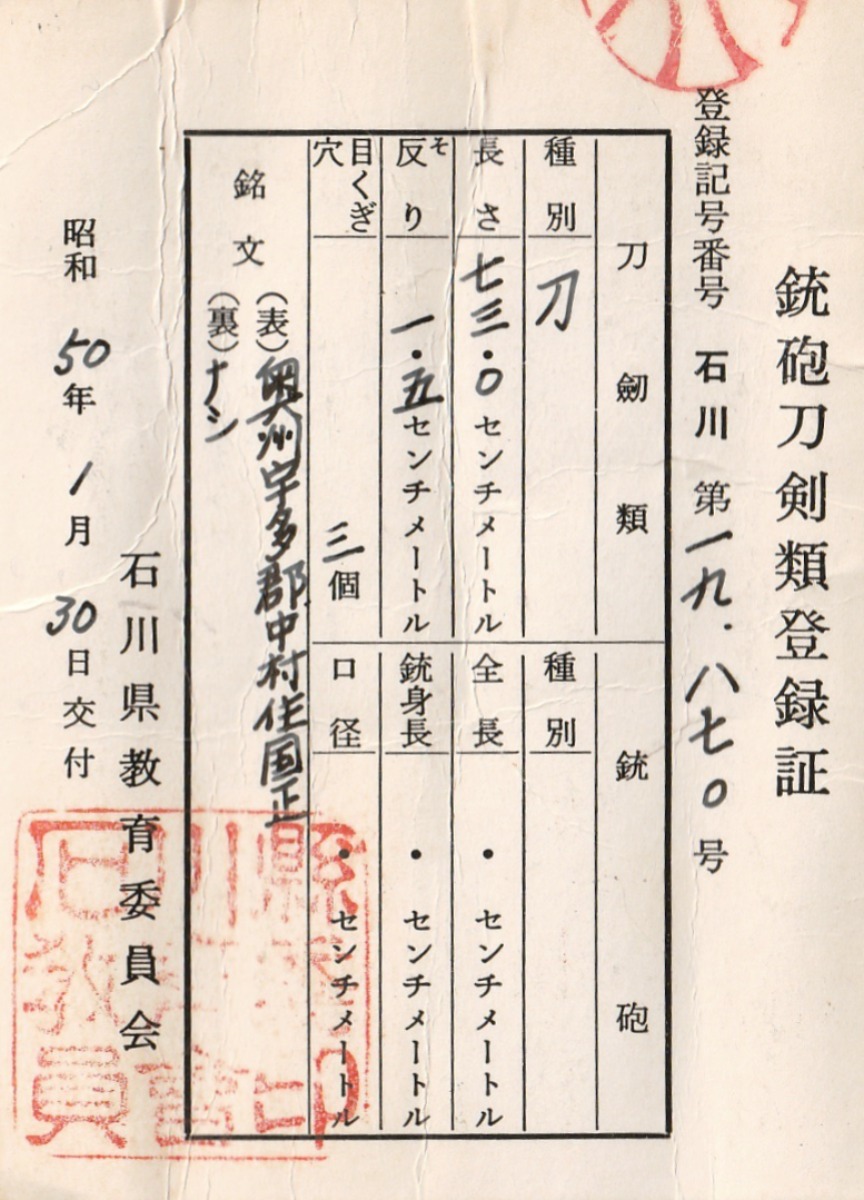 銃砲刀剣類登録証
登録記号番号 石川 第一九.八七〇号
刀劒類
銃砲
種別 刀
種別
長さ 七三・〇センチメートル
全長 ・ センチメートル
反り 一・五センチメートル
そ
銃身長 ・ センチメートル
目くぎ穴 三個
口径 ・ センチメートル
銘文 (表) 奥州宇多郡中村住国正
(裏) ナシ
石川県教育委員会
昭和50年1月30日交付